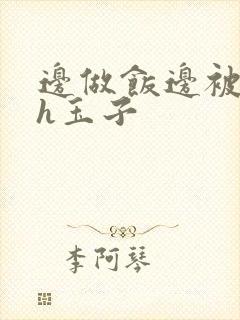 邊做飯邊被
h玉子
李阿琴